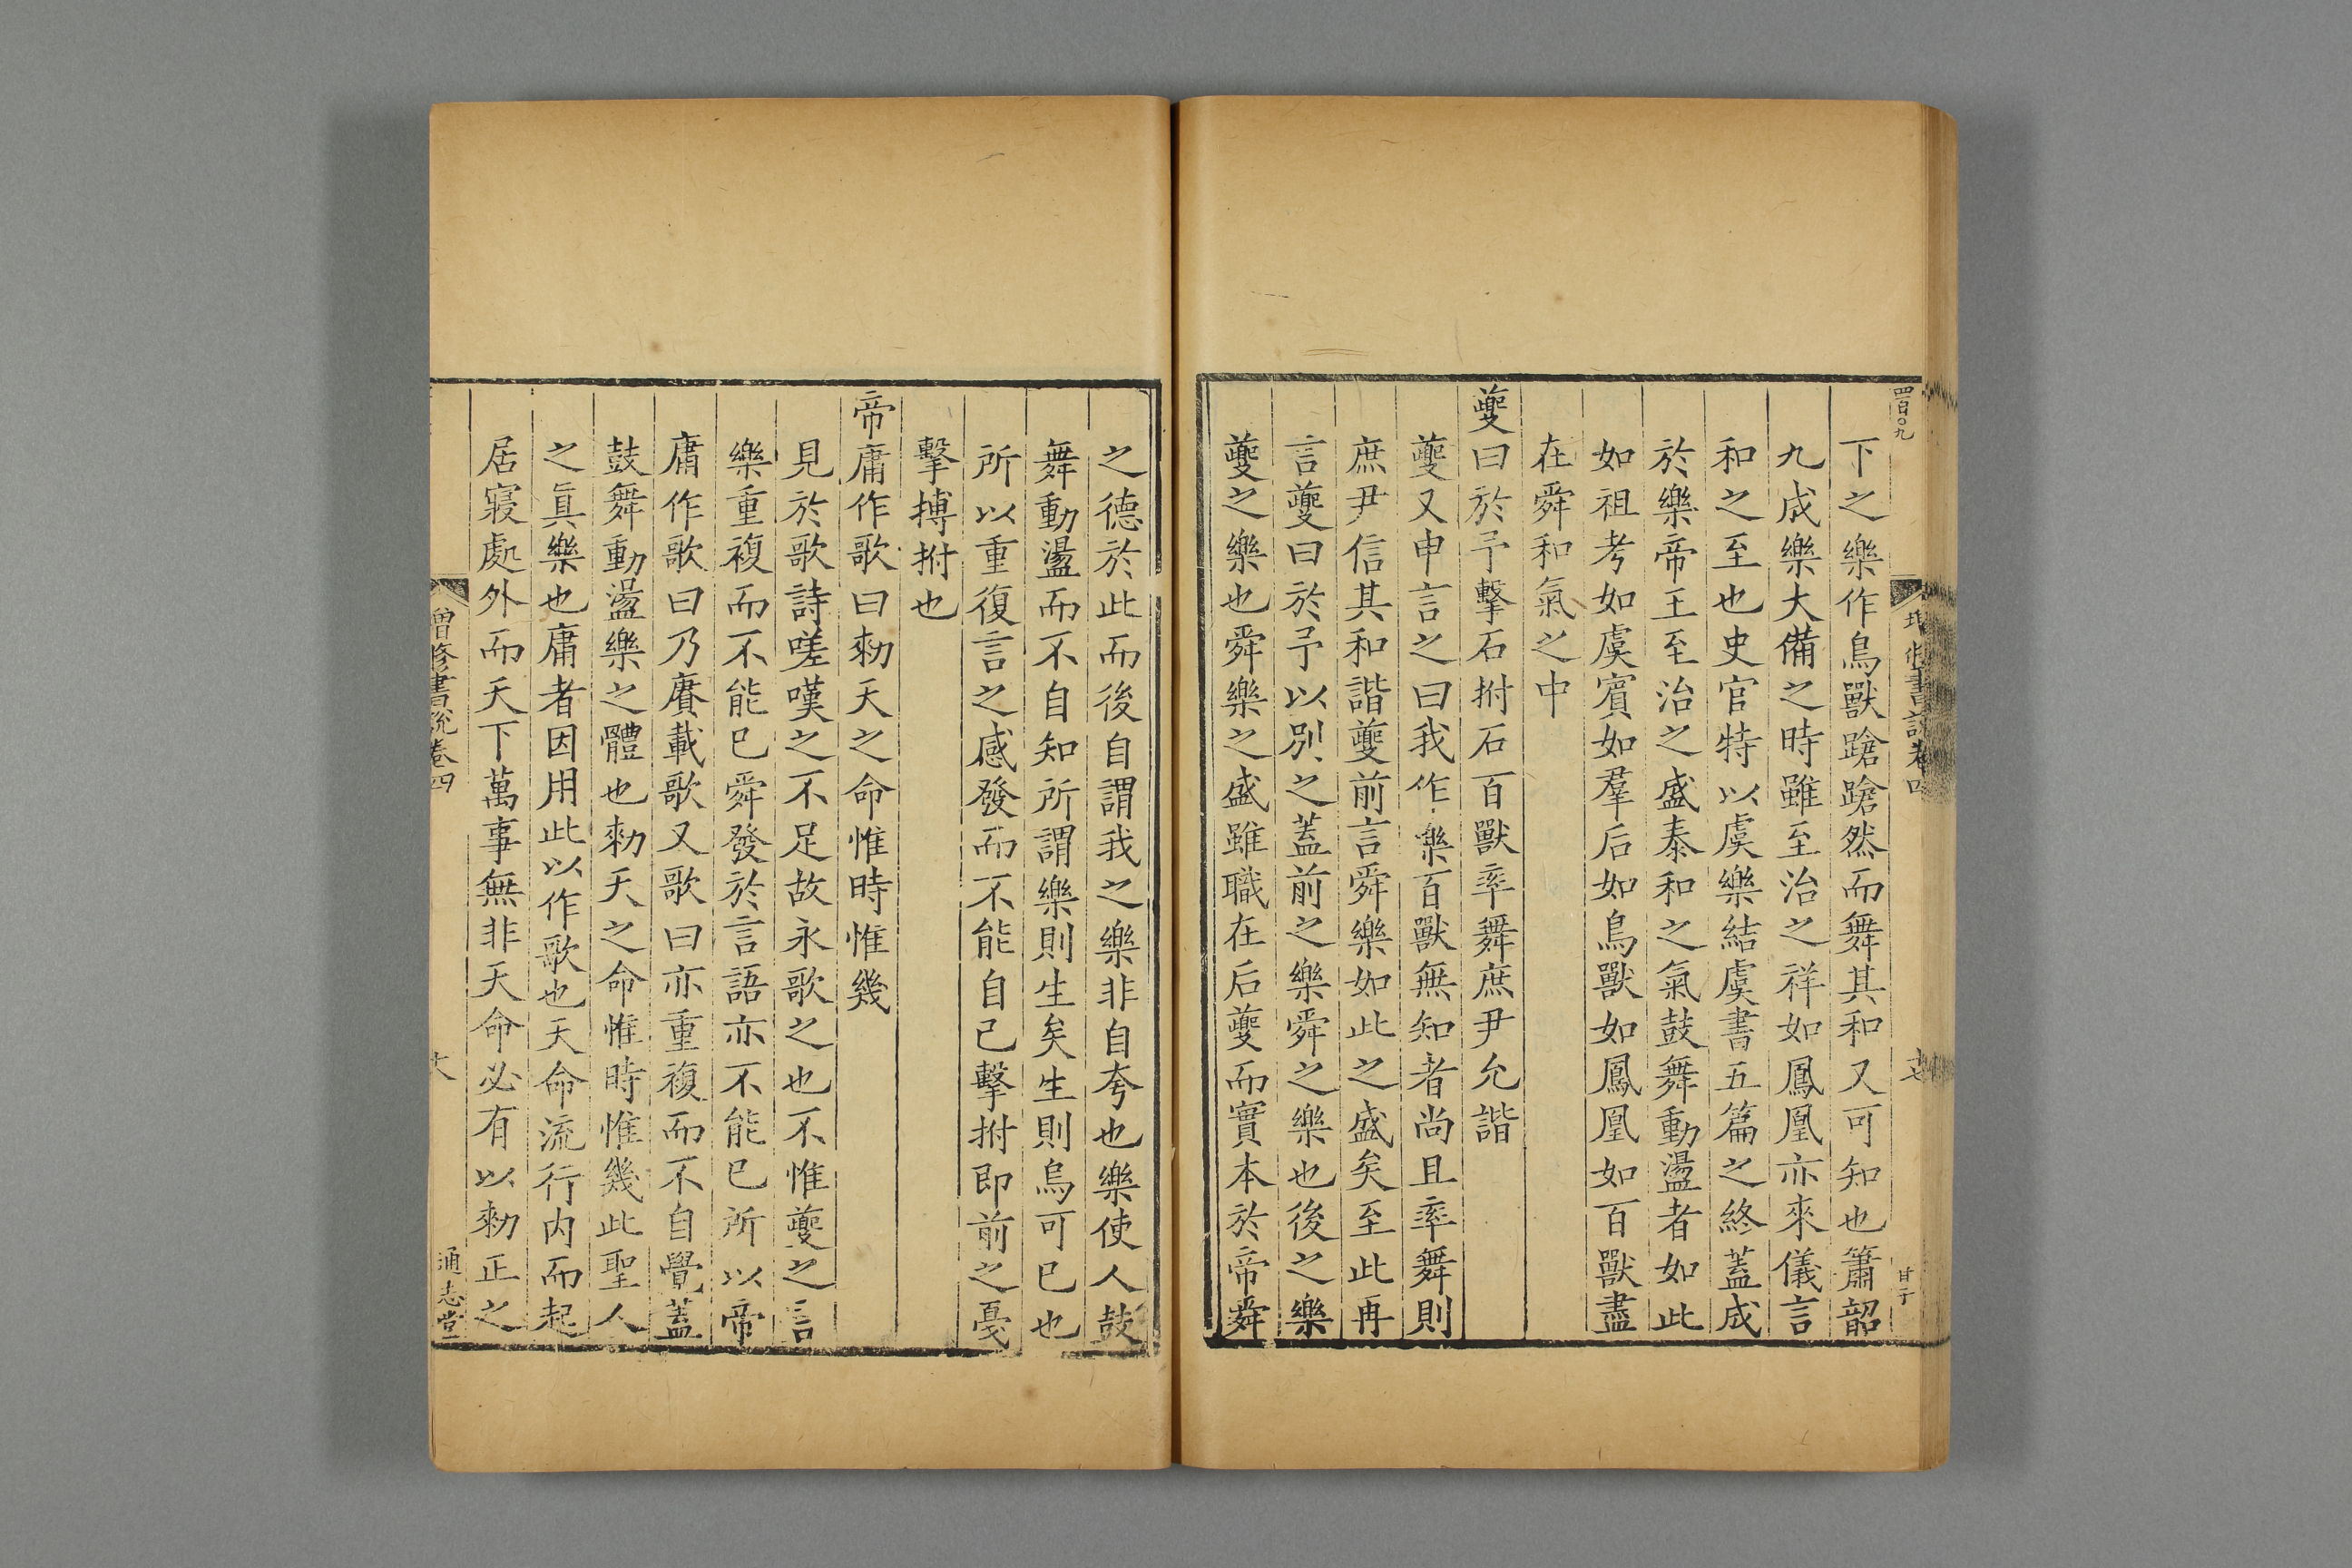 四百〇九
下之樂作鳥獸蹌蹌然而舞其和又可知也簫韶
九成樂大備之時雖至治之祥如鳳凰亦來儀言
和之至也史官特以虞樂結虞書五篇之終蓋成
於樂帝王至治之盛泰和之氣鼓舞動盪者如此
如祖考如虞賓如羣后如鳥獸如鳳凰如百獸盡
在舜和氣之中
夔曰於予擊石拊石百獸率舞庶尹允諧
夔又申言之曰我作樂百獸無知者尚且率舞則
庶尹信其和諧夔前言舜樂如此之盛矣至此再
言夔曰於予以別之蓋前之樂舜之樂也後之樂
夔之樂也舜樂之盛雖職在后夔而實本於帝舜
之德於此而後自謂我之樂非自夸也樂使人鼓
舞動盪而不自知所謂樂則生矣生則烏可已也
所以重復言之感發而不能自已擊拊即前之戛
擊搏拊也
帝庸作歌曰勑天之命惟時惟幾
見於歌詩嗟嘆之不足故永歌之也不惟夔之言
樂重複而不能已舜發於言語亦不能已所以帝
庸作歌曰乃賡載歌又歌曰亦重複而不自覺蓋
鼓舞動盪樂之體也勑天之命惟時惟幾此聖人
之真樂也庸者因用此以作歌也天命流行内而起
居寢處外而天下萬事無非天命必有以勑正之
增修書説卷四
通志堂